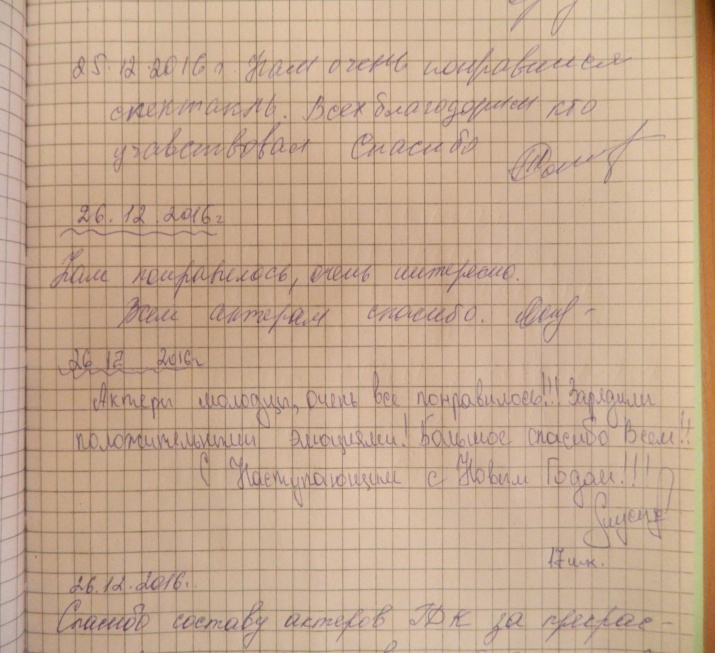 25.12.2016 г Нам очень понравился
спектакль. Всех благодарим кто
учавствовал Спасибо
26.12.2016г
Нам понравилось, очень интересно.
Всем актерам спасибо.
26 12 2016г
Актеры молодцы, очень все понравилось!!! Зарядили
положительными эмоциями! Большое спасибо Всем!!
С Наступающим с Новым Годом!!!
17 шк.
26.12.2016.
Спасибо составу актеров ГДК за прекрас-